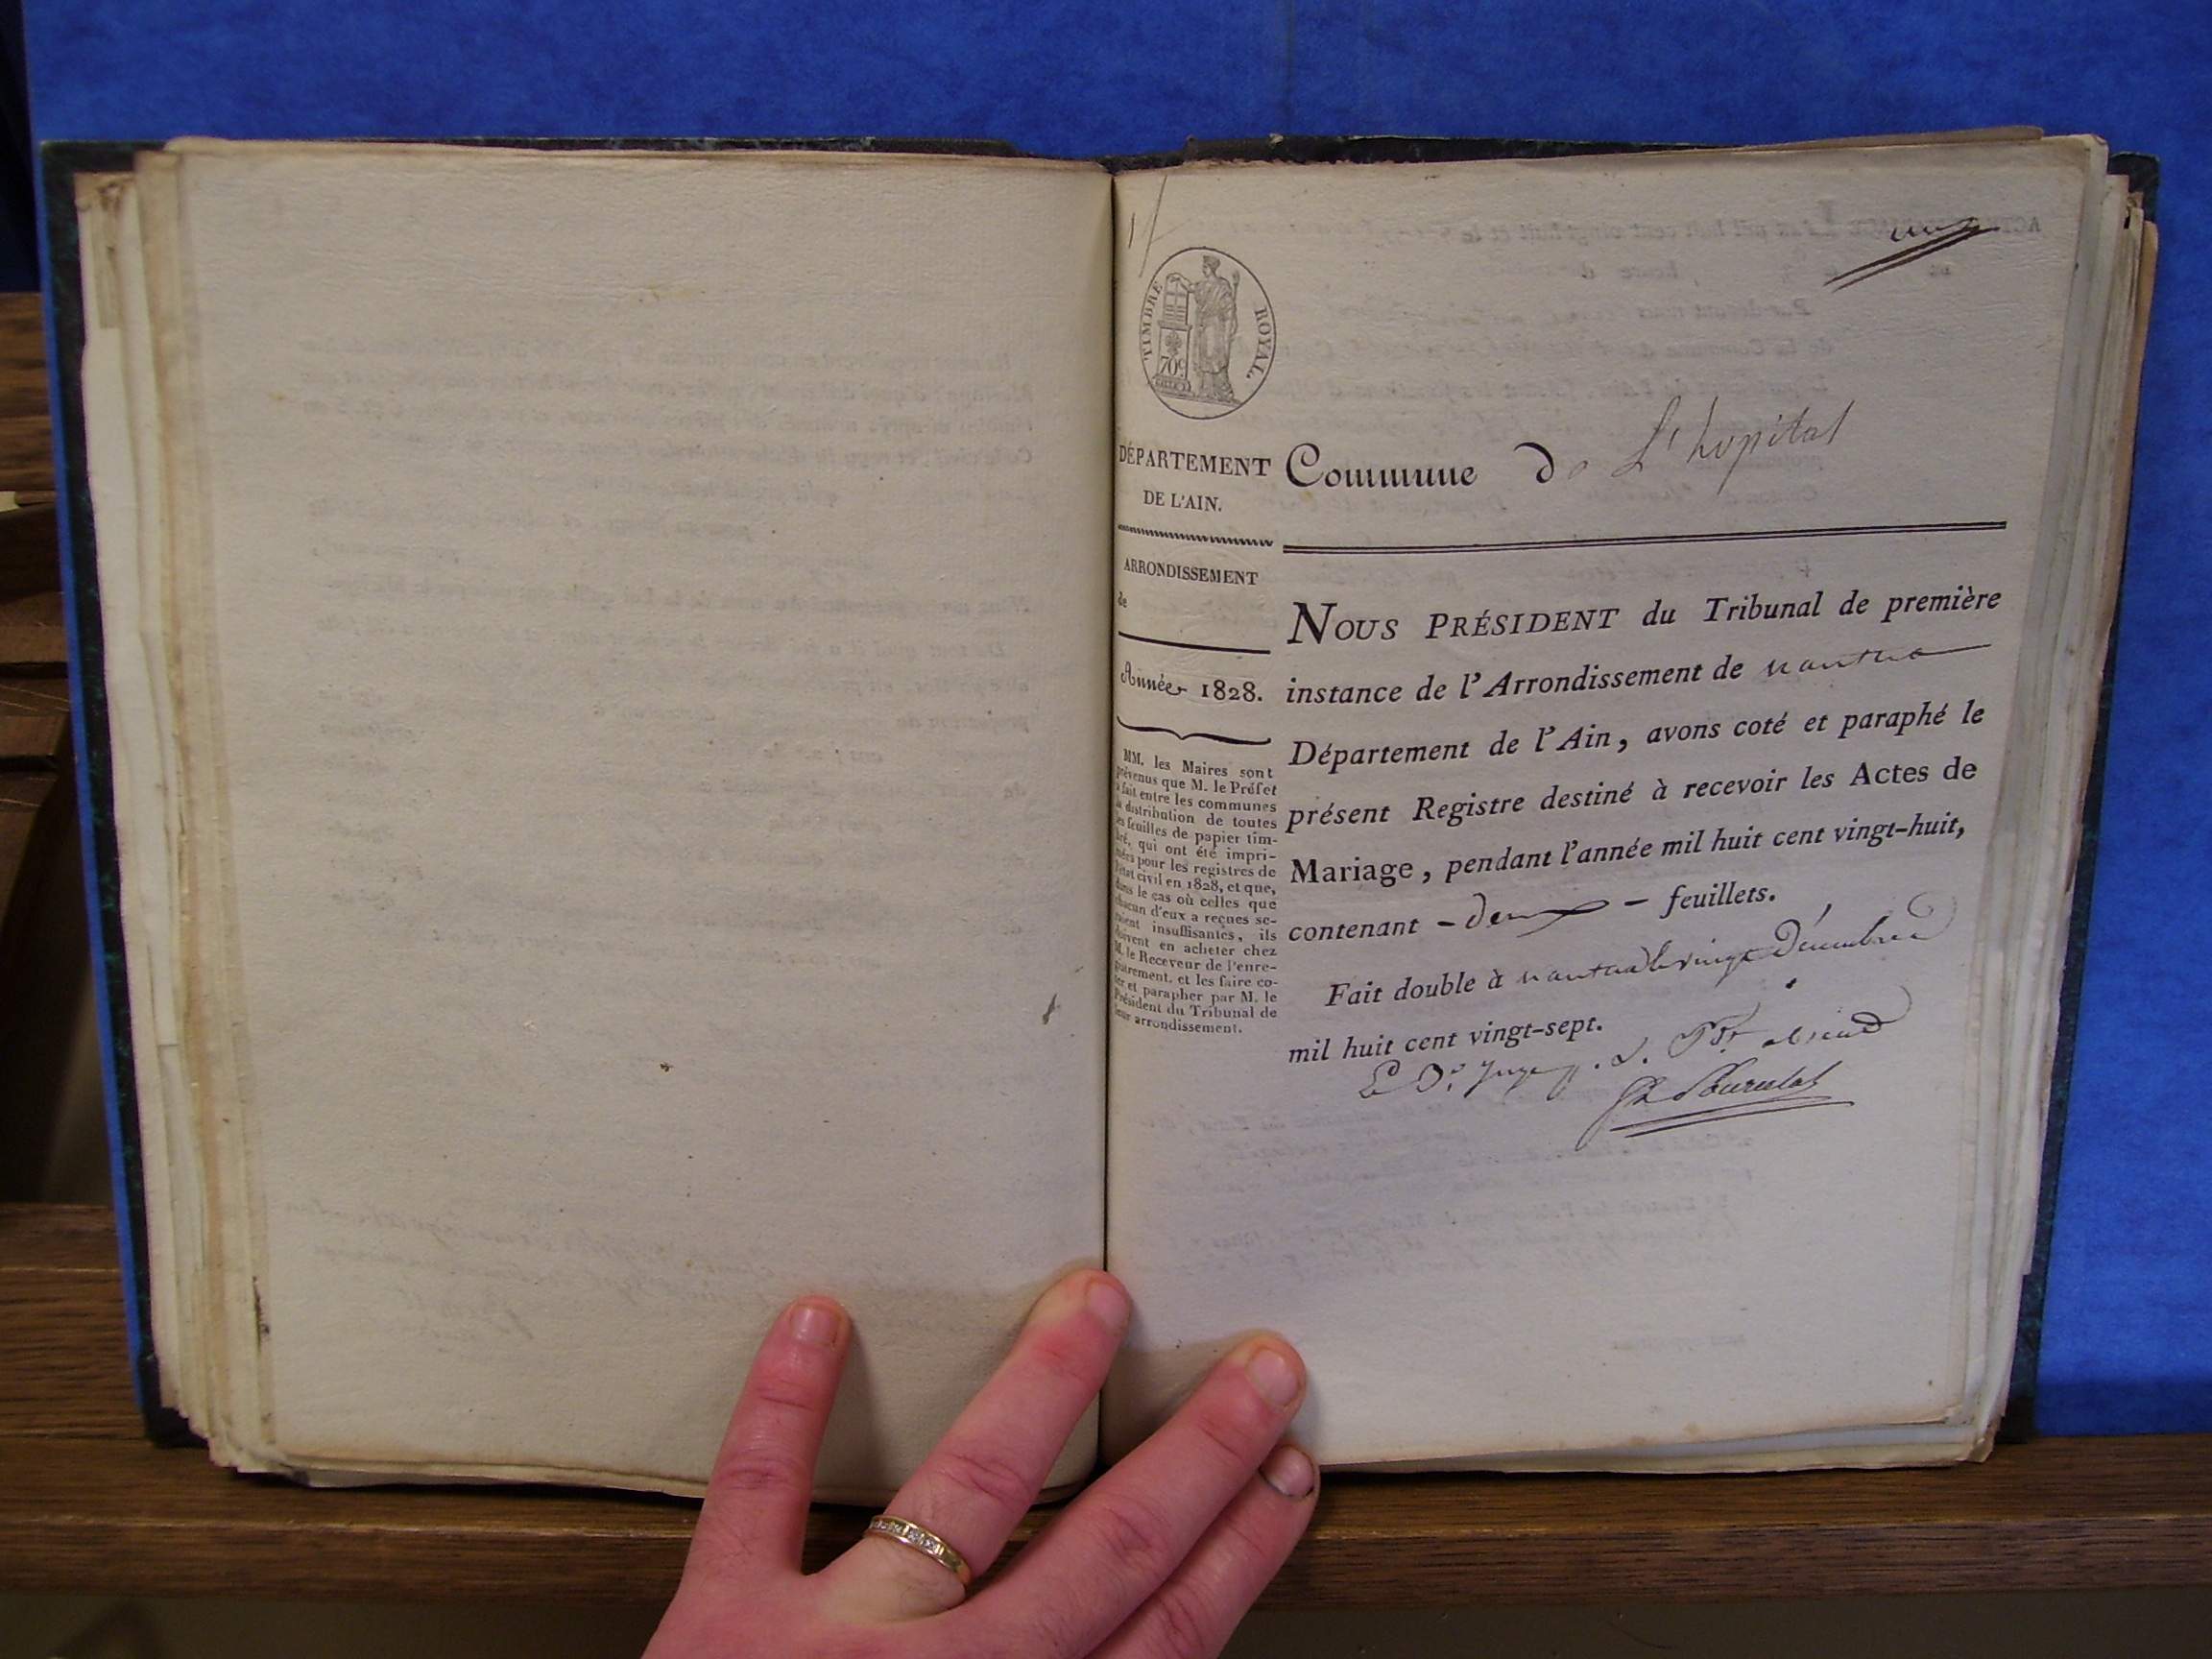 1
TIMBRE ROYAL.
70c
DÉPARTEMENT
DE L'AIN.
ARRONDISSEMENT
de
Année 1828.
MM. les Maires sont
prévenus que M. le Préfet
a fait entre les communes
la distribution de toutes
les feuilles de papier tim-
bré, qui ont été impri-
mées pour les registres de
l'état civil en 1828, et que,
dans le cas où celles que
chacun d'eux a reçues se-
roient insuffisantes, ils
doivent en acheter chez
M. le Receveur de l'enre-
gistrement, et les faire co-
ter et parapher par M. le
Président du Tribunal de
leur arrondissement.
Commune de L'hopital
NOUS PRÉSIDENT du Tribunal de première
instance de l'Arrondissement de nantua
Département de l'Ain, avons coté et paraphé le
présent Registre destiné à recevoir les Actes de
Mariage, pendant l'année mil huit cent vingt-huit,
contenant - deux - feuillets.
Fait double à nantua le vingt Décembre
mil huit cent vingt-sept.
Le Juge absent